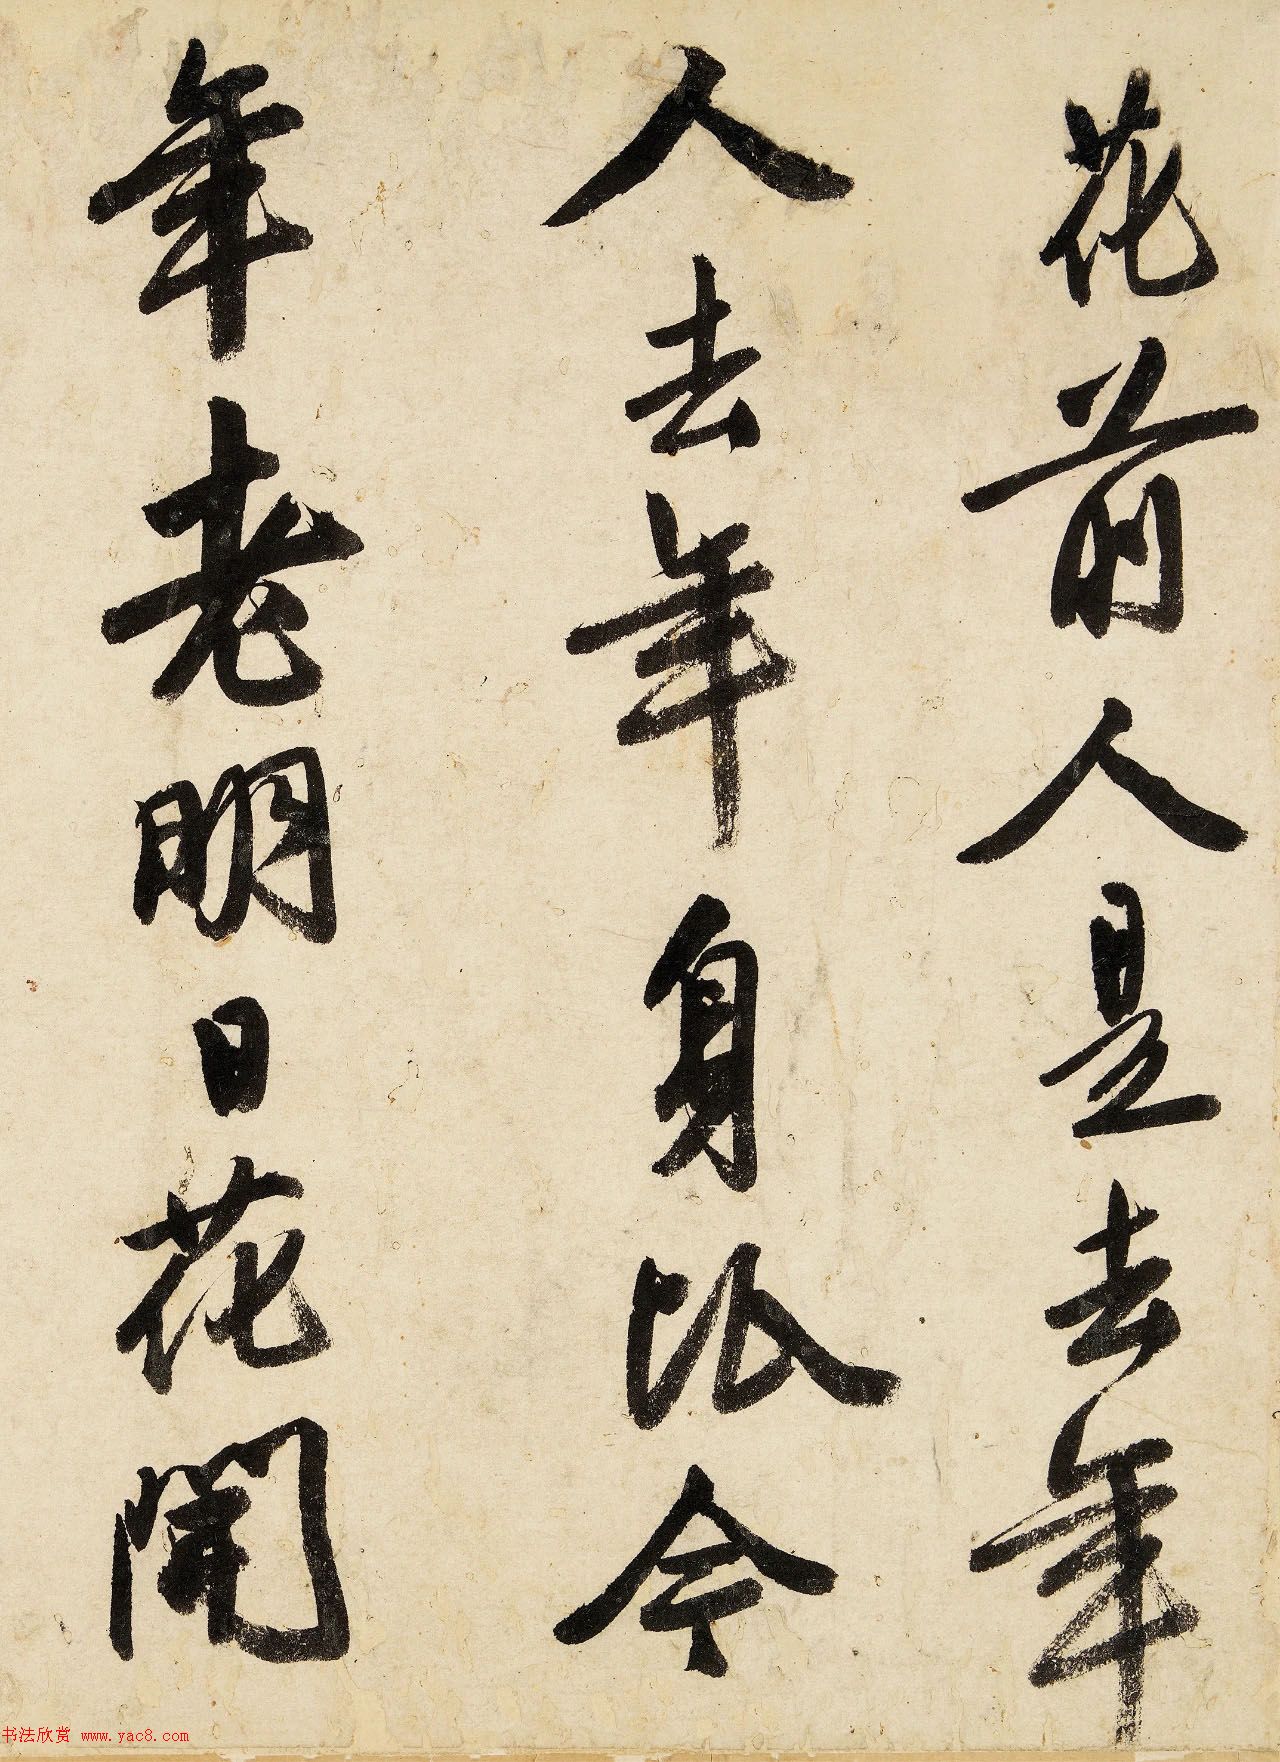 花前人是去年
人去年身比今
年老明日花開
书法欣赏 www.yac8.com